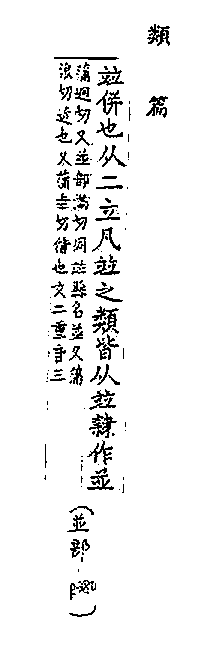 類篇
竝併也从二立凡竝之類皆从竝隸作並
蒲迥切又並部滿切同並縣名並又蒲
浪切近也又蒲幸切偕也文二重音三
(並部)